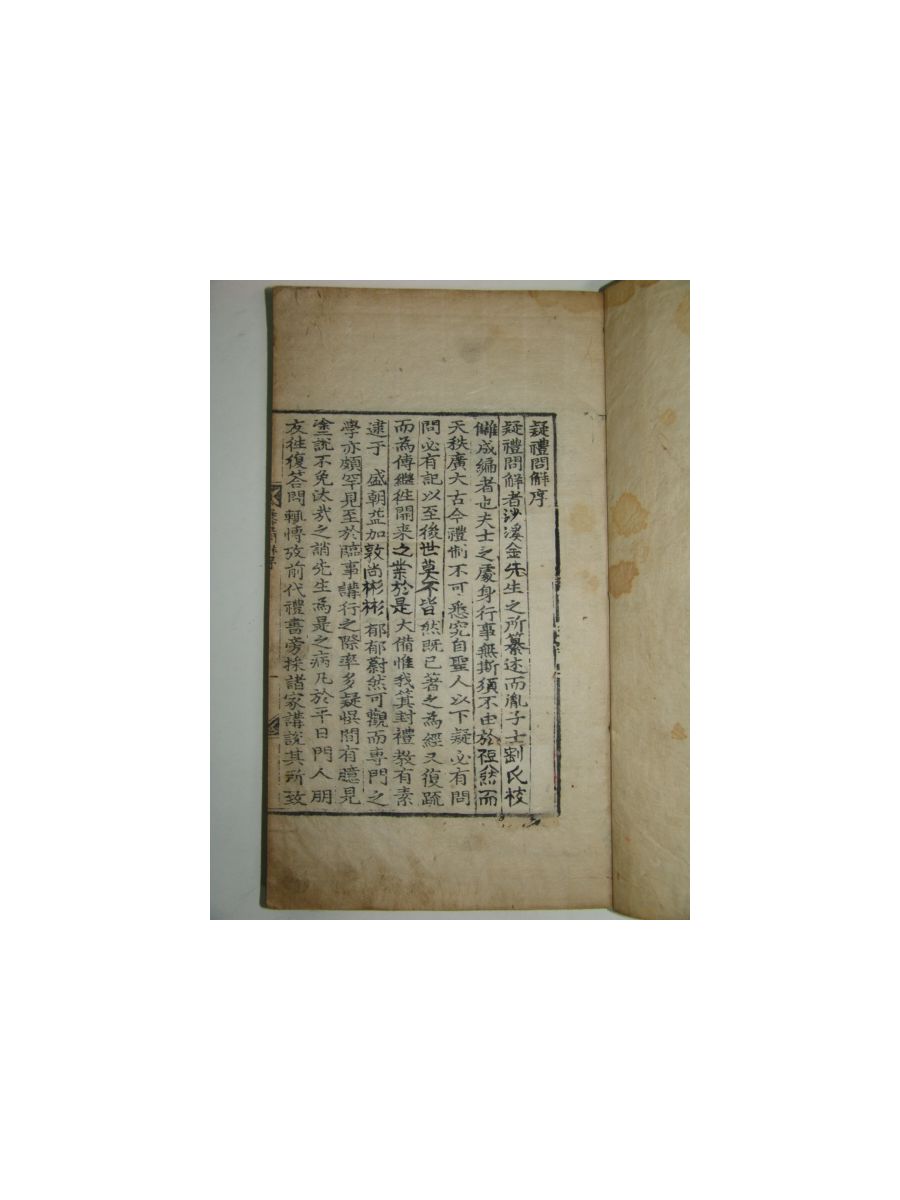 疑禮問解序
疑禮問解者沙溪金先生之所纂述而胤子士剛氏校
讎成編者也夫士之處身行事無斯須不由於禮然而
天秩廣大古今禮制不可悉究自聖人以下疑必有問
問必有記以至後世莫不皆然旣已著之為經又復疏
而為傳繼徃開来之業於是大備惟我箕封禮教有素
逮于 盛朝益加敦尚彬彬郁郁蔚然可觀而專門之
學亦頗罕見至於臨事講行之際率多疑悞問有臆見
塗說不免汰㢤之誚先生為是之病凡於平日門人朋
友徃復答問輒慱攷前代禮書旁採諸家講說其所致